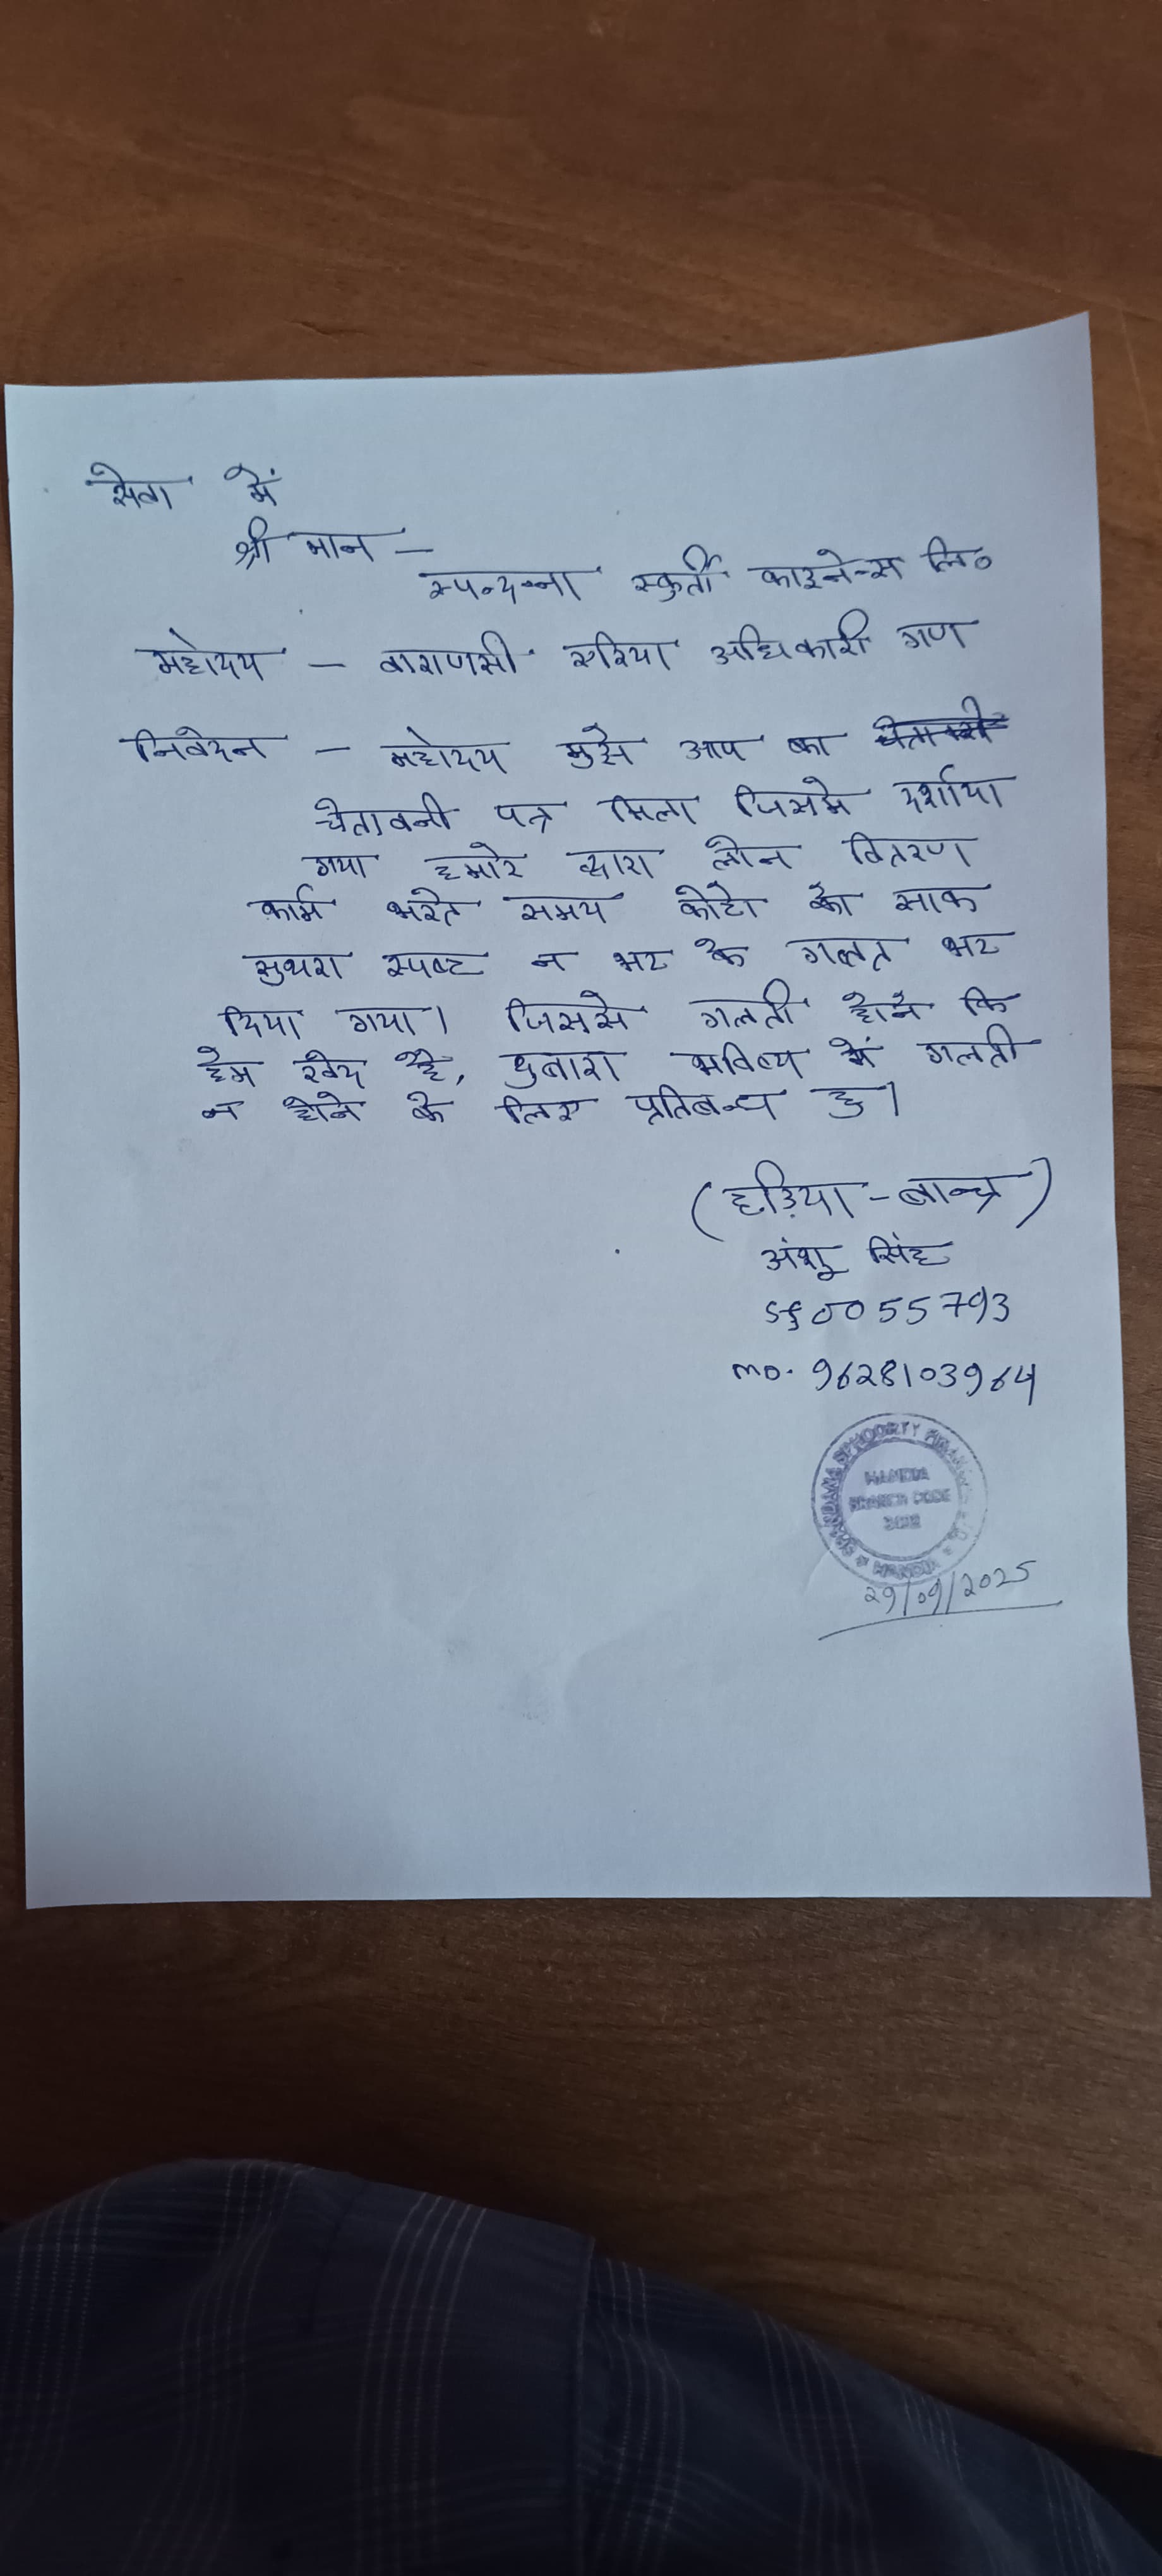 सेवा में
श्री मान –
स्पन्दना स्फुर्ती फाइनेन्स लि०
महोदय – वाराणसी एरिया अधिकारी गण
निवेदन – महोदय मुझे आप का
चेतावनी पत्र मिला जिसमे दर्शाया
गया हमारे द्वारा लोन वितरण
फार्म भरते समय फोटो को साफ
सुथरा स्पष्ट न भर के गलत भर
दिया गया। जिससे गलती होने कि
हम खेद है, दुबारा भविष्य में गलती
न होने के लिए प्रतिबन्ध हु।
(हड़िया - ब्रान्च)
अंशु सिंह
Sf0055793
mo. 9628103964
SPANDANA SPHOORTY
HANDIA
BRANCH CODE
HANDIA
29/09/2025